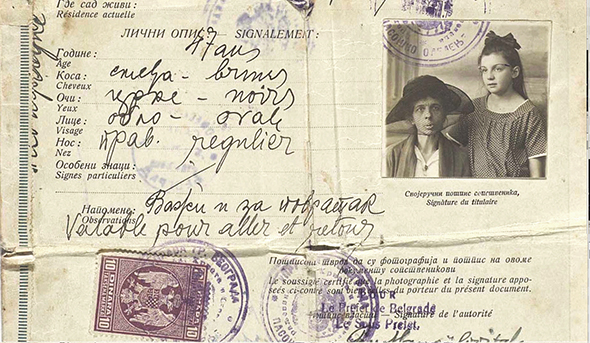 Где сад живи:
Résidence actuelle
ЛИЧНИ ОПИС
SIGNALEMENT:
Године: 47 ans
Age
Коса: смеђа - bruns
Cheveux
Очи: црне - noirs
Yeux
Лице: обло - ovale
Visage
Нос: прав. regulier
Nez
Особени знаци:
Signes particuliers
Напомене: Важи и за повратак
Observations
Valable pour aller et retour
Својеручни потпис сопственика,
Signâture du titulaire
Потписани тврди да су фотографија и потпис на овоме
документу сопственикови
Le soussigné certifie que la photographie et la signature appo-
sées ci-contre sont bien celles du porteur du présent document.
Le Préfet de Belgrade
Signature de l'autorité
Le Sous Prefet,
10 ДИНАРА 10